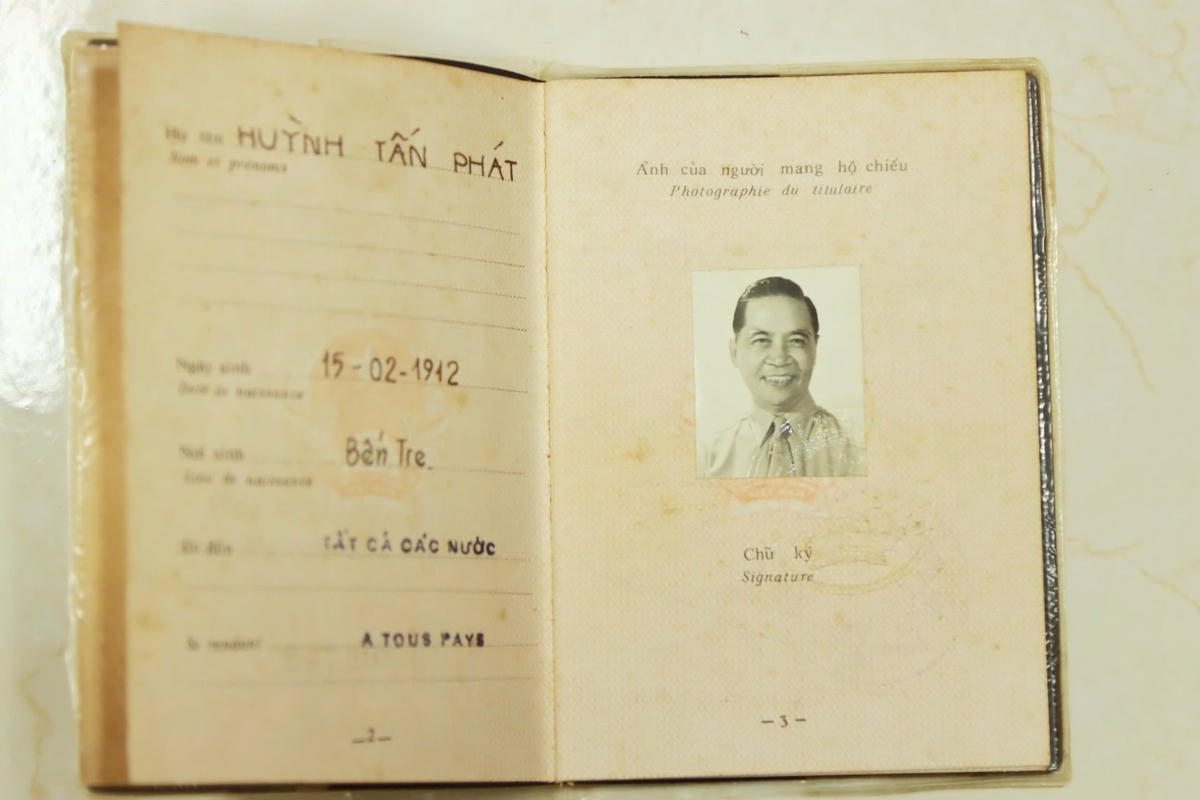 Họ tên HUỲNH TẤN PHÁT
Nom et prénoms
Ngày sinh 15-02-1912
Date de naissance
Nơi sinh Bến Tre.
Lieu de naissance
Đi đến TẤT CẢ CÁC NƯỚC
Se rendant A TOUS PAYS
—2—
Ảnh của người mang hộ chiếu
Photographie du titulaire
Chữ ký
Signature
— 3 —